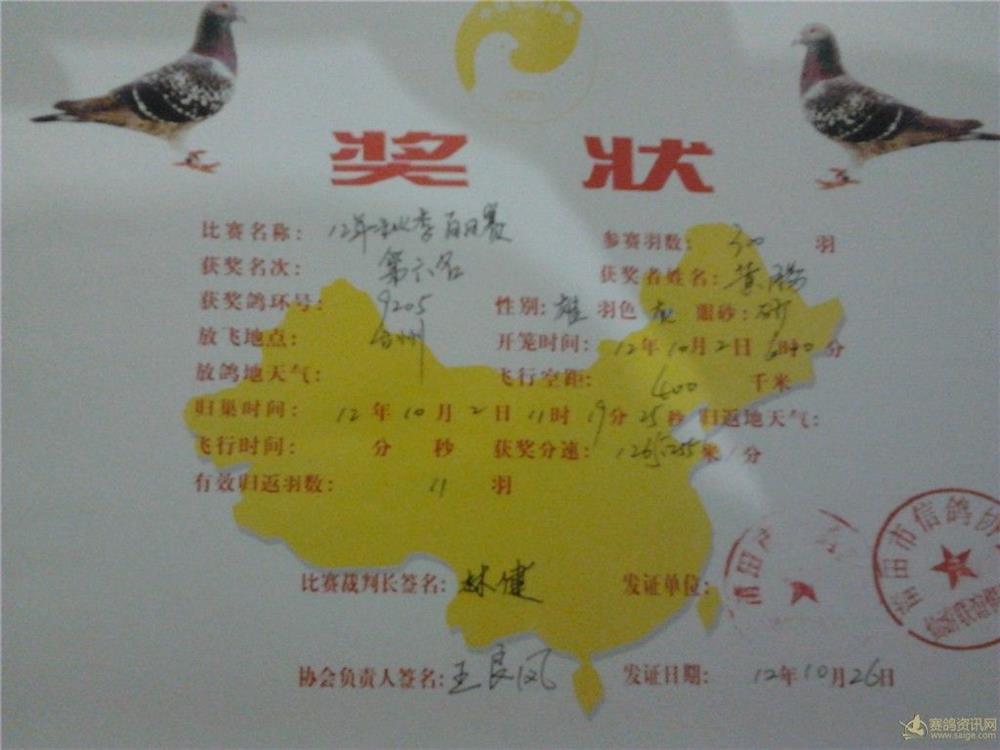 奖 状
比赛名称: 12年秋季百日赛 参赛羽数: 300 羽
获奖名次: 第六名 获奖者姓名: 黄
获奖鸽环号: 9205 性别: 雄 羽色 眼砂: 砂
放飞地点: 台州 开笼时间: 12年10月2日 6时 分
放鸽地天气: 飞行空距: 400 千米
归巢时间: 12年10月2日11时19分25秒 归返地天气:
飞行时间: 分 秒 获奖分速: 米/分
有效归返羽数: 11 羽
比赛裁判长签名: 林健 发证单位:
市信鸽协
协会负责人签名: 王良风 发证日期: 12年10月26日
赛鸽资讯网
www.saige.com